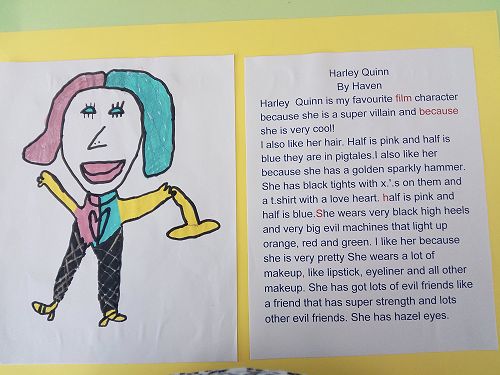 Harley Quinn
By Haven
Harley  Quinn is my favourite film character
because she is a super villain and because
she is very cool!
I also like her hair. Half is pink and half is
blue they are in pigtales.I also like her
because she has a golden sparkly hammer.
She has black tights with x.'.s on them and
a t.shirt with a love heart. half is pink and
half is blue.She wears very black high heels
and very big evil machines that light up
orange, red and green. I like her because
she is very pretty She wears a lot of
makeup, like lipstick, eyeliner and all other
makeup. She has got lots of evil friends like
a friend that has super strength and lots
other evil friends. She has hazel eyes.